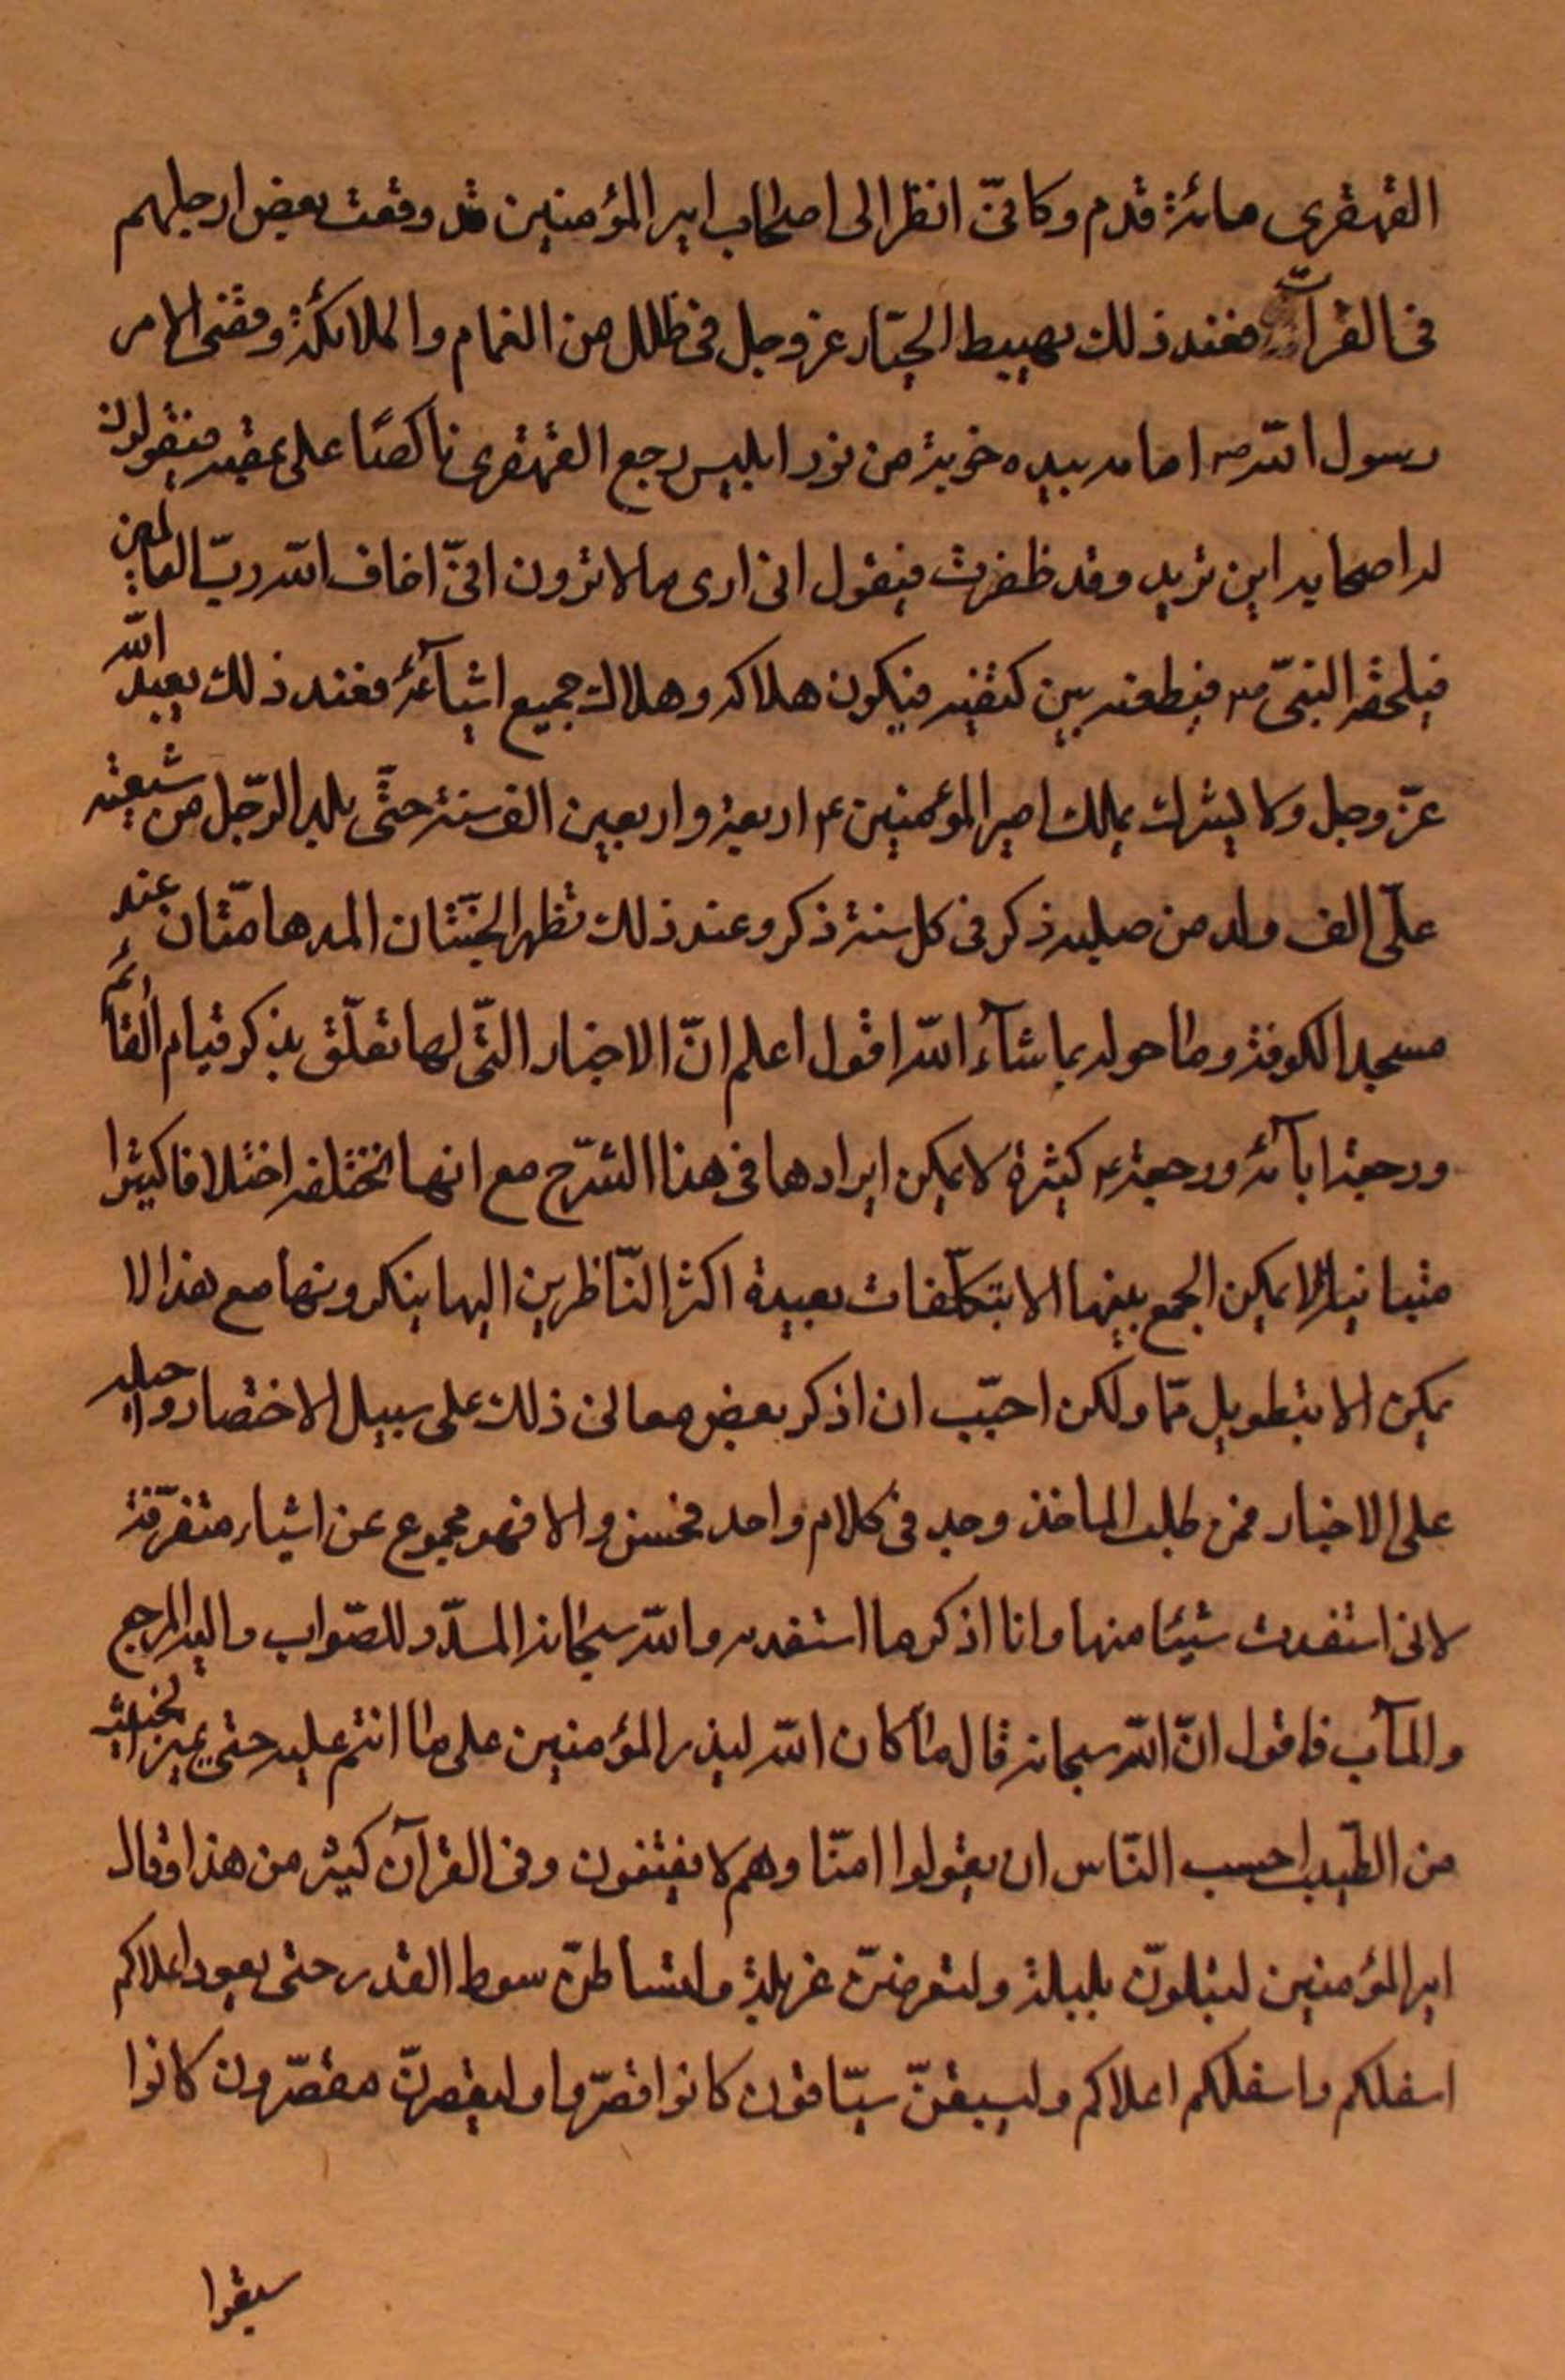 القهقرى مائة قدم وكانّى انظر الى اصحاب امير المؤمنين قد وقعت بعض ارجلهم
فى الفرات فعند ذلك يهبط الجبّار عز وجل فى ظلل من الغمام والملائكة وقضى الامر
رسول اللّه ص امامه بيده حربة من نور ابليس رجع القهقرى ناكصًا على عقبه فيقولون
له اصحابه اين تريد وقد ظفرت فيقول انى ارى ما لا ترون انىّ اخاف اللّه ربّ العالمين
فيلحقه النبىّ ص فيطعنه بين كتفيه فيكون هلاكه وهلاك جميع اشياعه فعند ذلك يعبد اللّه
عزّ وجل ولا يشرك يملك امير المؤمنين ع اربعة واربعين الف سنة حتّى يلد الرّجل من شيعة
علىّ الف ولد من صلبه ذكر فى كل سنة ذكر وعند ذلك تظهر الجنّتان المدهامّتان عند
مسجد الكوفة وما حوله بما شآء اللّه اقول اعلم انّ الاخبار التّى لها تعلّق بذكر قيام القائم
ورجعة ابآئه ورجعته ع كثيرة لا يمكن ايرادها فى هذا الشّرح مع انها مختلفه اختلافا كثيرا
متباينا لا يمكن الجمع بينها الا بتكلّفات بعيدة اكثر النّاظرين اليها ينكرونها مع هذا لا
يمكن الا بتطويل تمّا ولكن احبّب ان اذكر بعض معانى ذلك على سبيل الاختصار وا
على الاخبار فمن طلب الماخذ وجد فى كلام واحد فحسن والا فهو مجموع عن اشياء متفرّقة
لانى استفدت شيئا منها وانا اذكر ما استفدته واللّه سبحانه المسدّد للصّواب واليه المرجع
والمآب فاقول انّ اللّه سبحانه قال ما كان اللّه ليذر المؤمنين على ما انتم عليه حتى يميز الخبيث
من الطّيب احسب النّاس ان يقولوا امنّا وهم لا يفتنون وفى القرآن كثير من هذا وقال
امير المؤمنين لتبلونّ بلبلة ولتغربلنّ غربلة ولتساطنّ سوط القدر حتى يعود اعلاكم
اسفلكم واسفلكم اعلاكم وليسبقنّ سبّاقون كانوا قصّروا وليقصرنّ مقصّرون كانوا
سبقوا